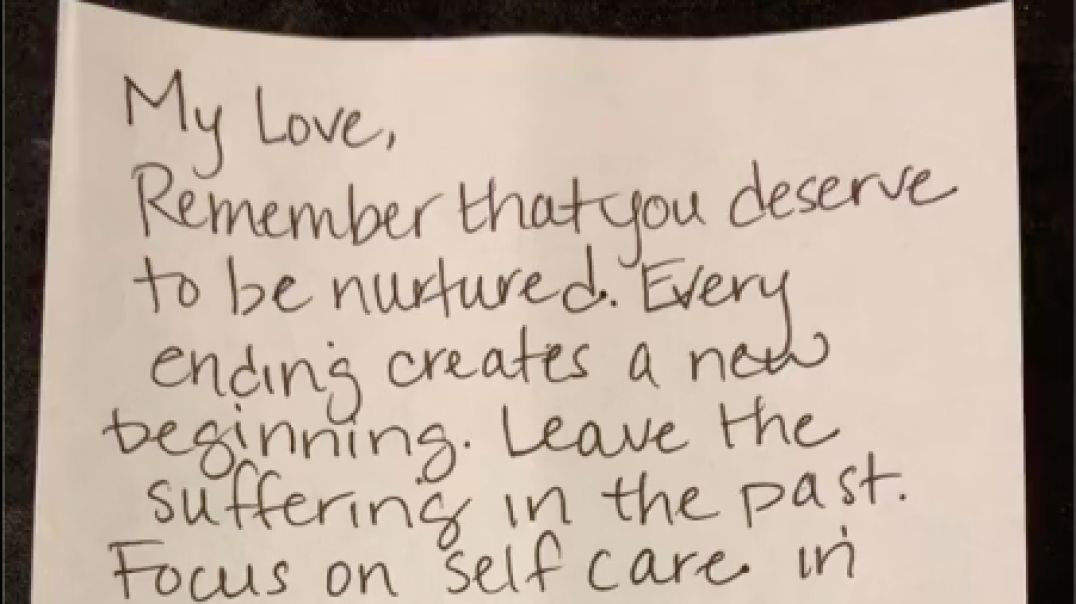 My Love,
Remember that you deserve
to be nurtured. Every
ending creates a new
beginning. Leave the
suffering in the past.
Focus on self care in